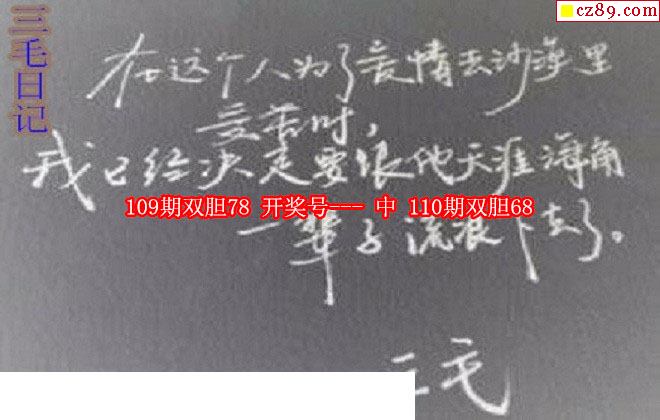 cz89.com
三毛日记
在这个人为了爱情去沙漠里
受苦时，
我已经决定要跟他天涯海角
109期双胆78 开奖号--- 中 110期双胆68
一辈子流浪下去了。
三毛